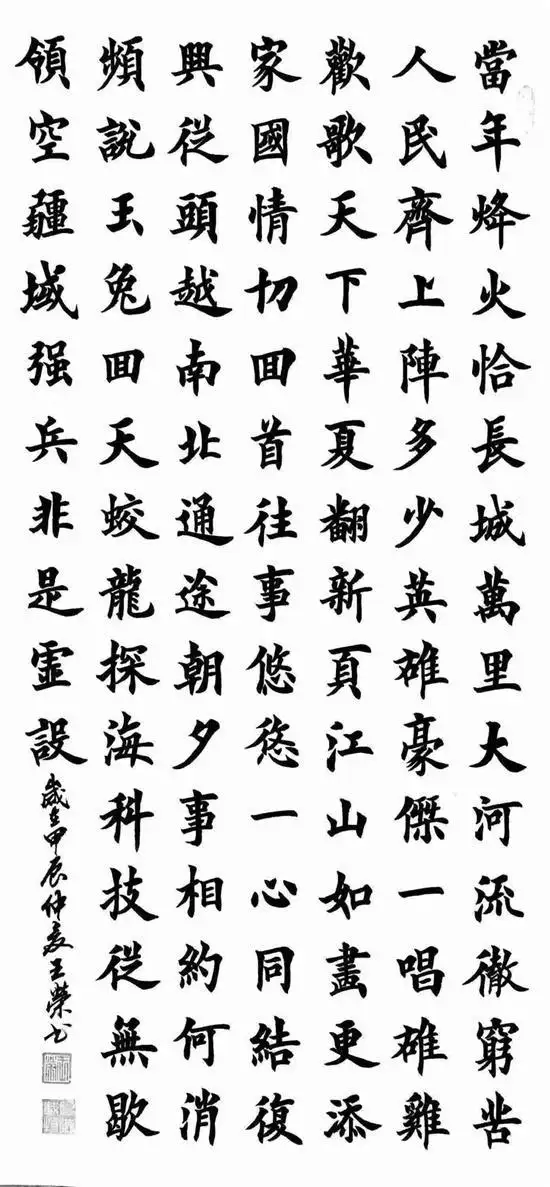 當年烽火恰長城萬里大河流徹窮苦
人民齊上陣多少英雄豪傑一唱雄雞
歡歌天下華夏翻新頁江山如畫更添
家國情切回首往事悠悠一心同結復
興從頭越南北通途朝夕事相約何消
頻說玉兔回天蛟龍探海科技從無歇
領空疆域强兵非是虛設
歲在甲辰仲夏王榮書